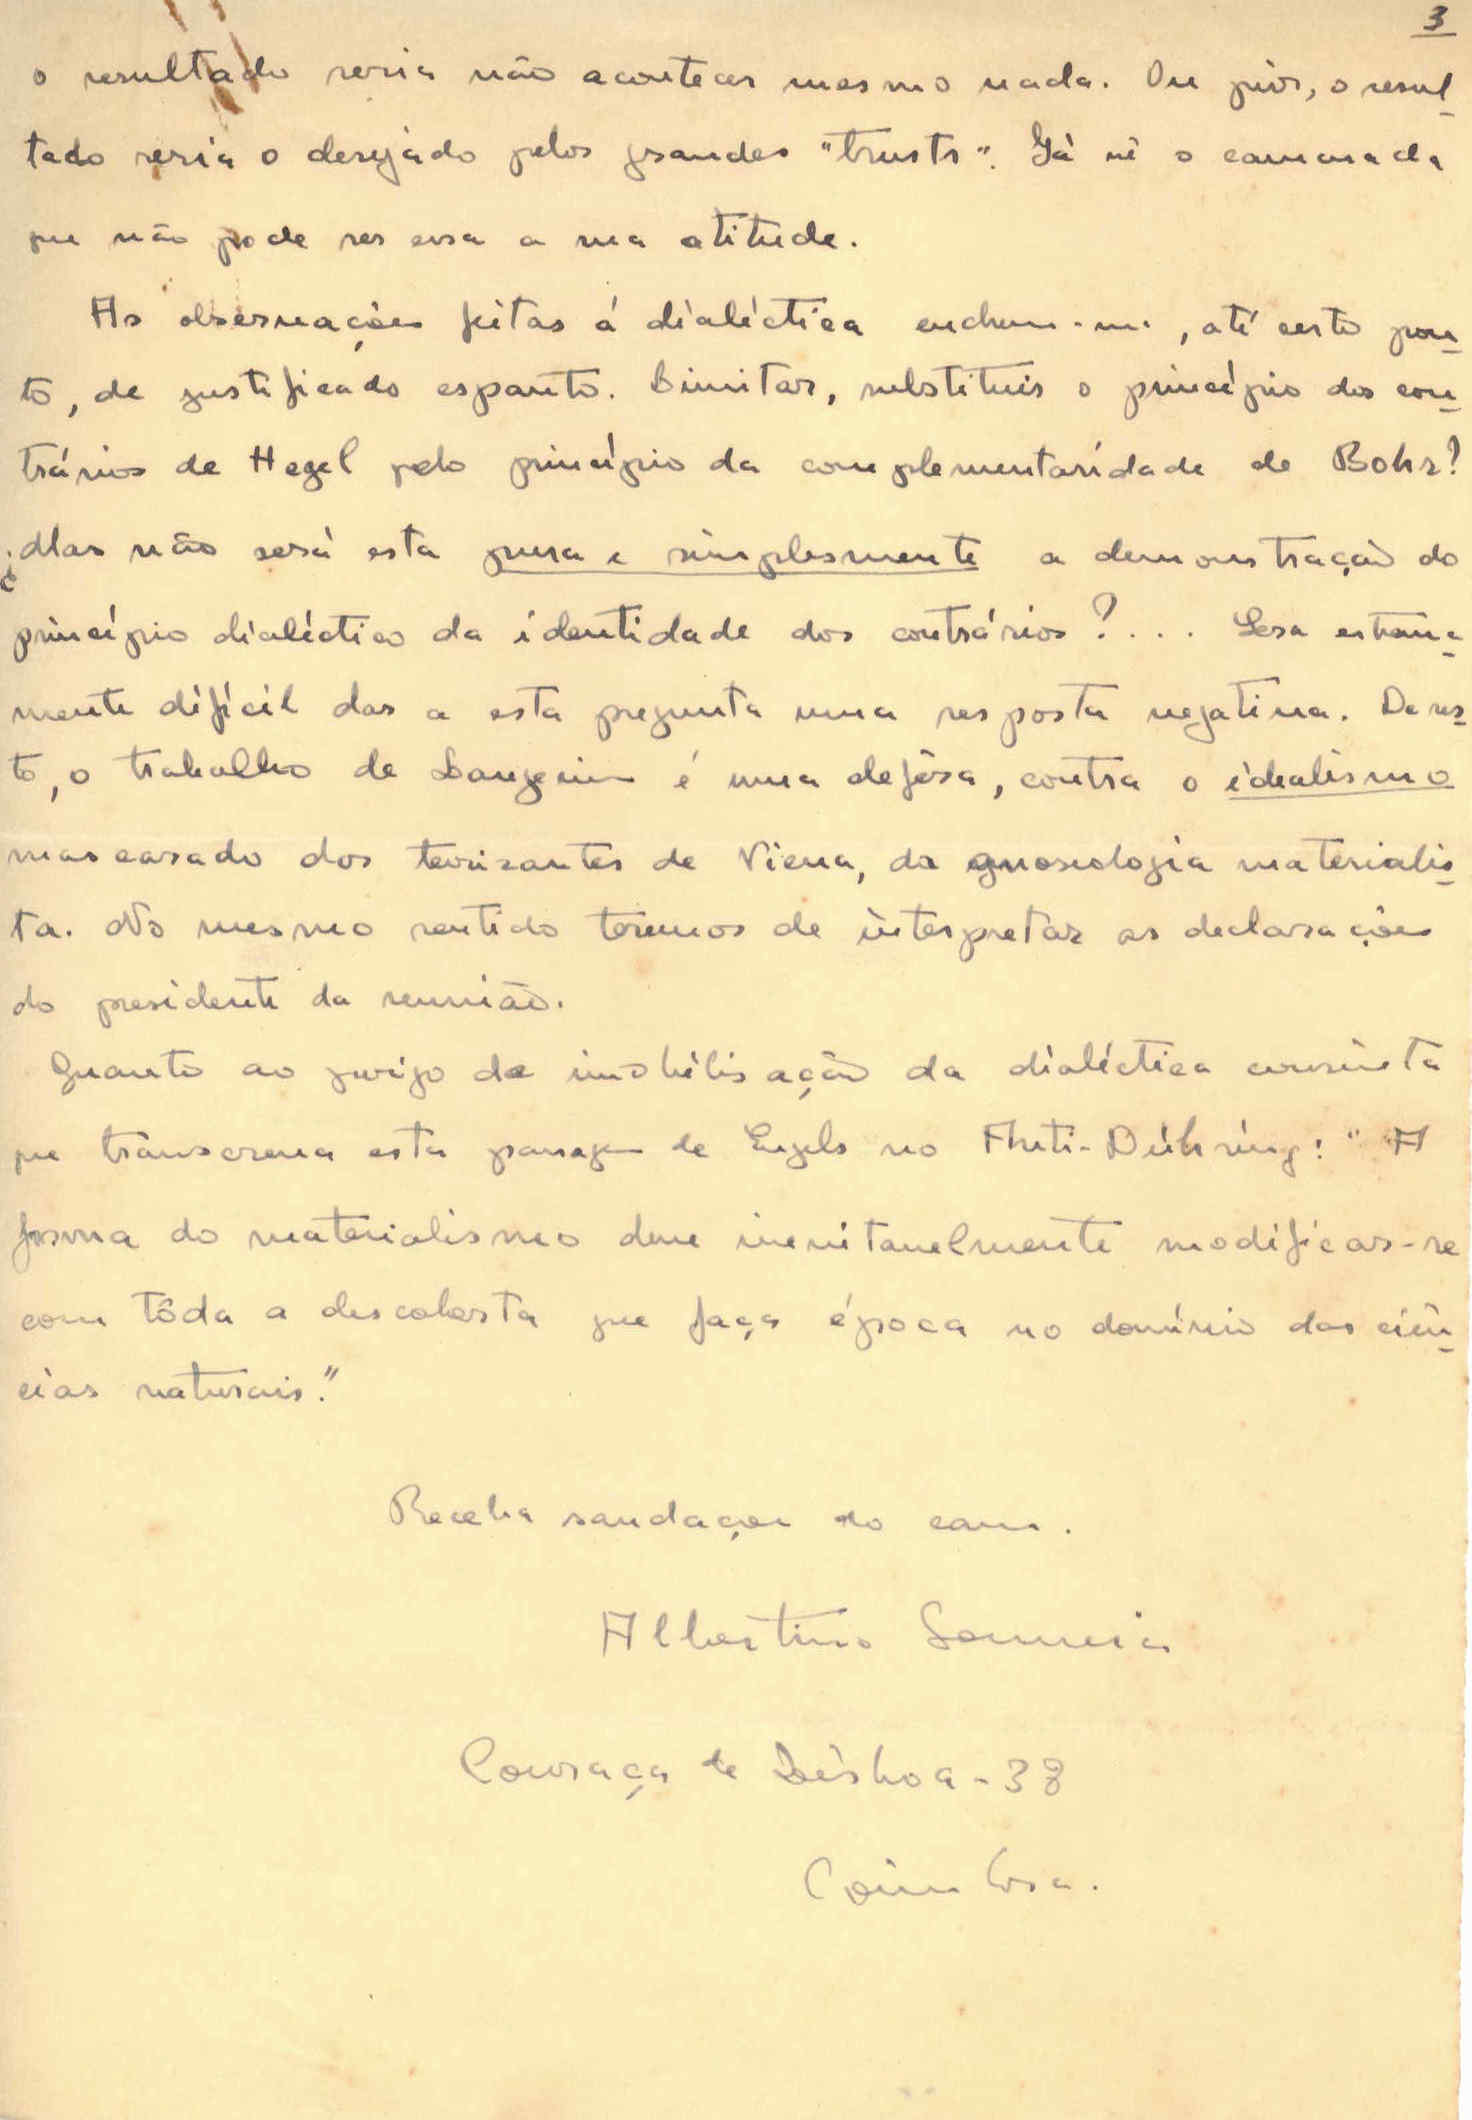 3
o resultado seria não acontecer mesmo nada. Ou piór, o resul-
tado seria o desejádo pelos grandes "trusts". Já vê o camarada
que não pode ser essa a sua atitude.
As observações feitas á dialéctica enchem-me, até certo pon-
to, de justificado espanto. Limitar, substituir o princípio dos con-
trários de Hegel pelo princípio da complementaridade de Bohr?
¿Mas não será esta pura e simplesmente a demonstração do
princípio dialéctico da identidade dos contrários?... Será extrema-
mente difícil dar a esta pregunta uma resposta negativa. De res-
to, o trabalho de Langevin é uma defêsa, contra o idealismo
mascarado dos teorizantes de Viena, da gnoseologia materialis-
ta. No mesmo sentido teremos de interpretar as declarações
do presidente da reunião.
Quanto ao perigo de imobilisação da dialéctica consinta
que transcreva esta passagem de Engels no Anti-Dühring: "A
forma do materialismo deve inevitavelmente modificar-se
com tôda a descoberta que faça época no domínio das ciên-
cias naturais."
Receba saudações do cam.
Albertino Gouveia
Couraça de Lisboa - 38
Coimbra.